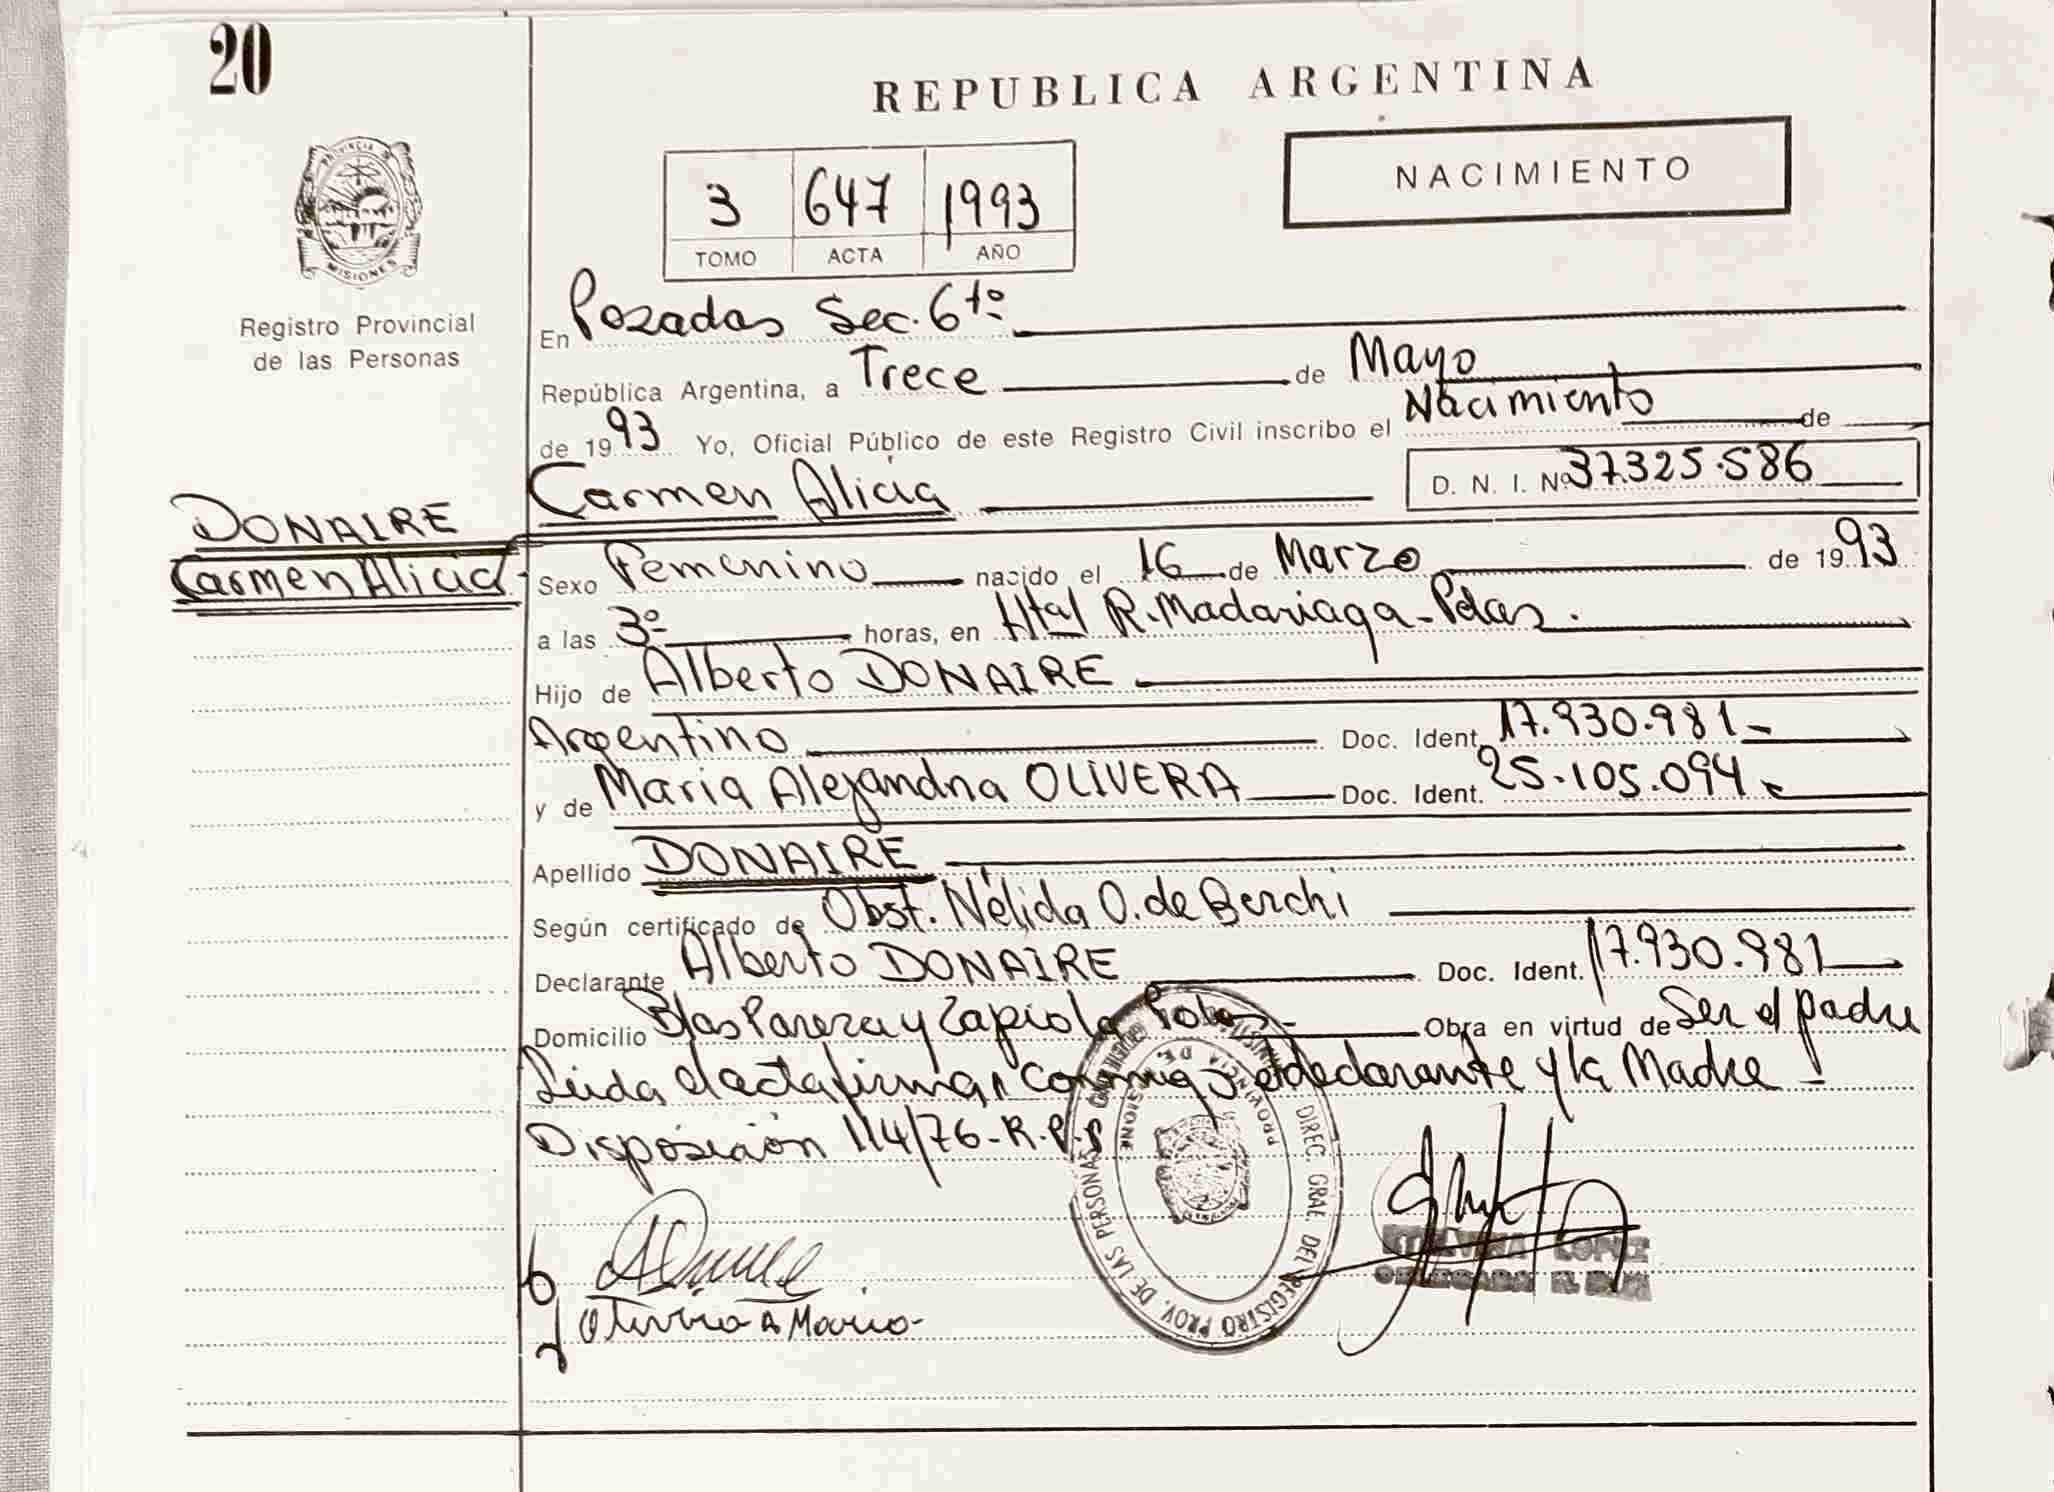 20
REPUBLICA ARGENTINA
NACIMIENTO
3 647 1993
TOMO ACTA AÑO
PROVINCIA DE
MISIONES
Registro Provincial
de las Personas
En Pozadas Sec. 6tº
República Argentina, a Trece de Mayo
de 1993 Yo, Oficial Público de este Registro Civil inscribo el Nacimiento de
Carmen Alicia D. N. I. Nº 37.325.586
DONAIRE
Carmen Alicia
Sexo Femenino nacido el 16 de Marzo de 1993
a las 3º horas, en Htal R. Madariaga - Pdas.
Hijo de Alberto DONAIRE
Argentino Doc. Ident. 17.930.981
y de Maria Alejandra OLIVERA Doc. Ident. 25.105.094
Apellido DONAIRE
Según certificado de Obst. Nélida O. de Berchi
Declarante Alberto DONAIRE Doc. Ident. 17.930.981
Domicilio Blas Parera y Zapiola Obra en virtud de Ser el padre
Leida el acta firman conmigo el declarante y la Madre
Disposición 114/76 - R.P.
DIREC. GRAL. DEL REGISTRO PROV. DE LAS PERSONAS
PROVINCIA DE MISIONES
LOPEZ
Olivera A Maria